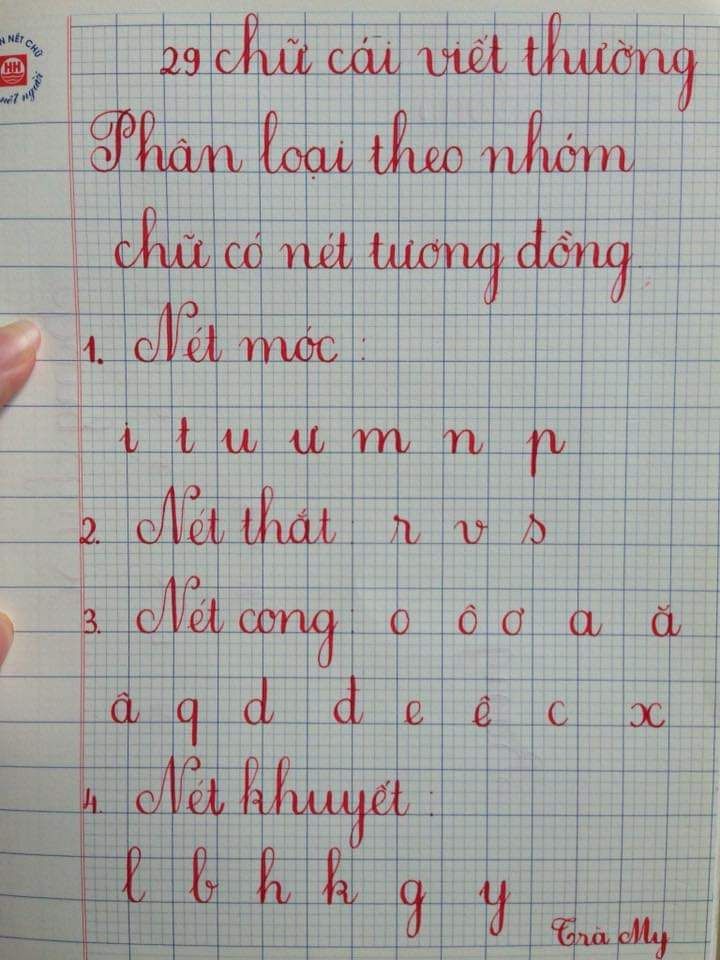 N NÉT CHỮ
HH
nết người
29 chữ cái viết thường
Phân loại theo nhóm
chữ có nét tương đồng
1. Nét móc :
i t u ư m n p
2. Nét thắt : r v s
3. Nét cong : o ô ơ a ă
â q d đ e ê c x
4. Nét khuyết :
l b h k g y
Trà My